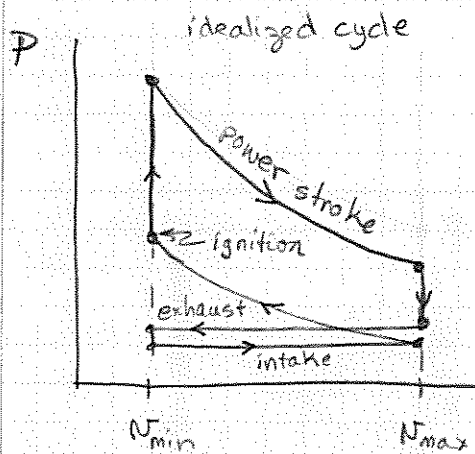 idealized cycle
P
power stroke
ignition
exhaust
intake
Vmin
Vmax